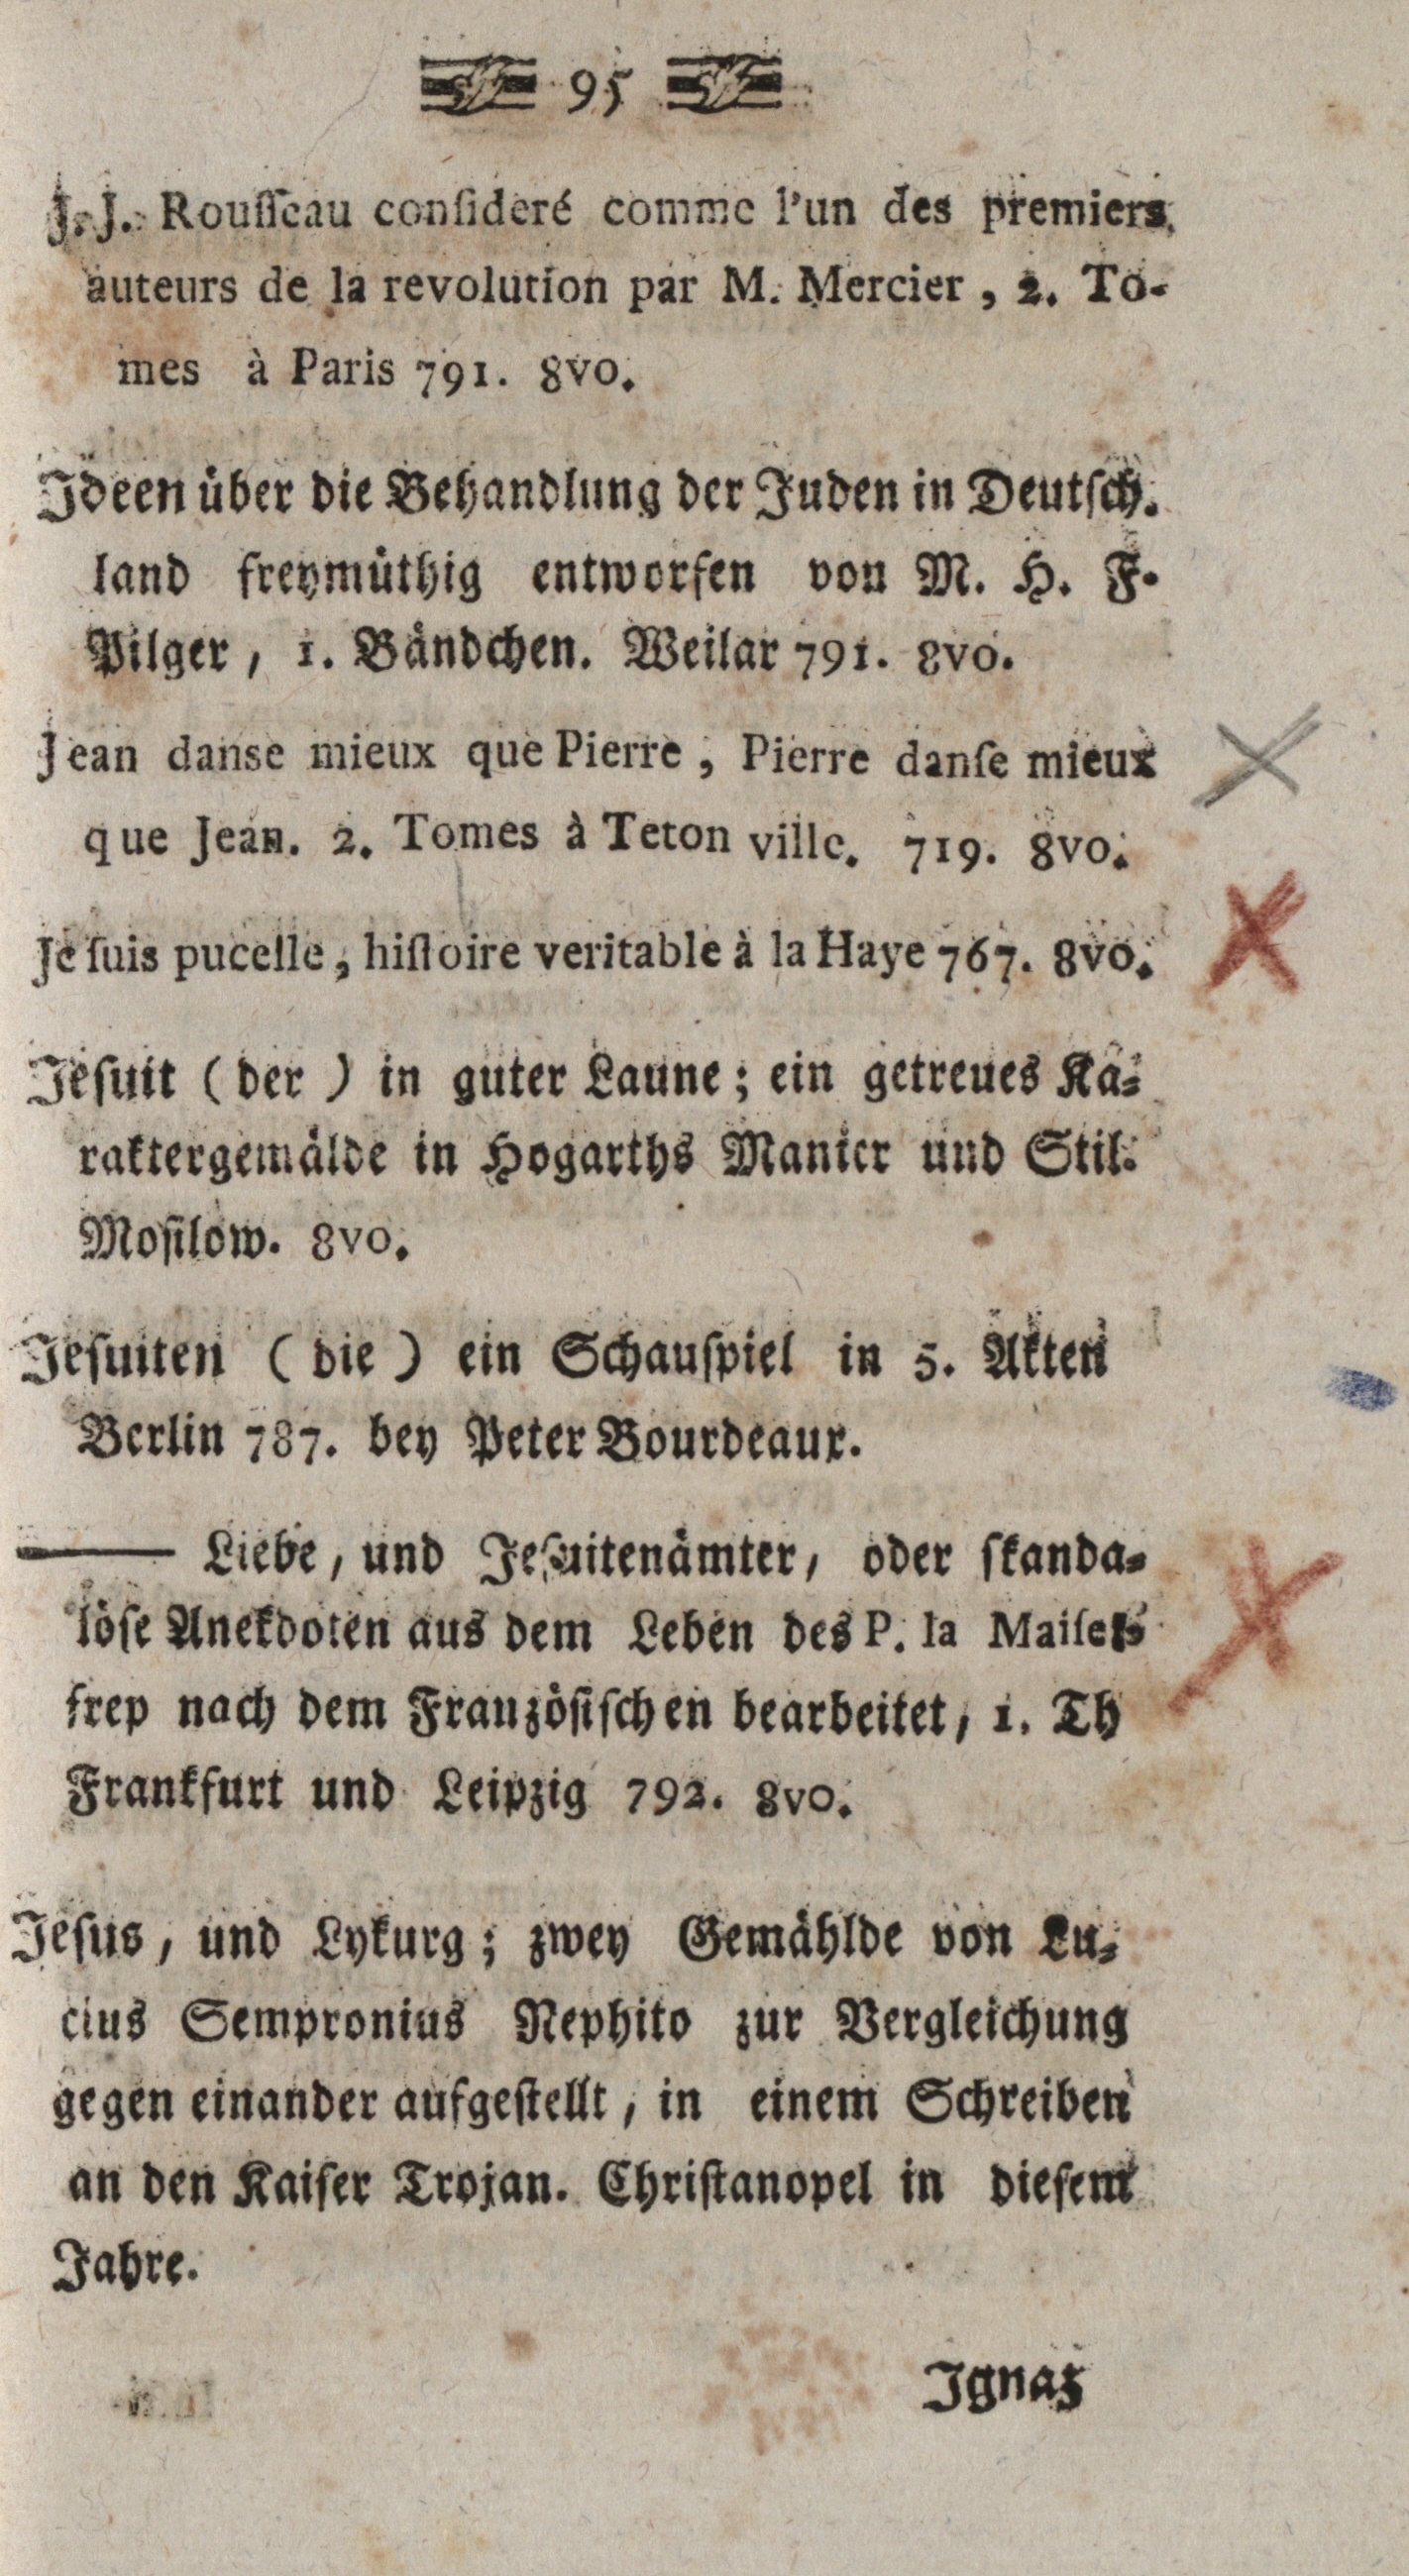 95
J. J. Rouſſeau conſideré comme l'un des premiers
auteurs de la revolution par M. Mercier, 2. To-
mes à Paris 791. 8vo.
Ideen über die Behandlung der Juden in Deutſch.
land freymüthig entworfen von M. H. F.
Pilger, 1. Bändchen. Weilar 791. 8vo.
Jean danse mieux que Pierre, Pierre danſe mieux
que Jean. 2. Tomes à Teton ville. 719. 8vo.
Je ſuis pucelle, hiſtoire veritable à la Haye 767. 8vo.
Jeſuit (der) in guter Laune; ein getreues Ka-
raktergemälde in Hogarths Manier und Stil.
Moſilow. 8vo.
Jeſuiten (die) ein Schauſpiel in 5. Akten
Berlin 787. bey Peter Bourdeaux.
—— Liebe, und Jeſuitenämter, oder ſkanda-
löſe Anekdoten aus dem Leben des P. la Maiſel-
frep nach dem Franzöſiſchen bearbeitet, 1. Th
Frankfurt und Leipzig 792. 8vo.
Jeſus, und Lykurg; zwey Gemählde von Lu-
cius Sempronius Nephito zur Vergleichung
gegen einander aufgeſtellt, in einem Schreiben
an den Kaiſer Trojan. Chriſtanopel in dieſem
Jahre.
Ignaz